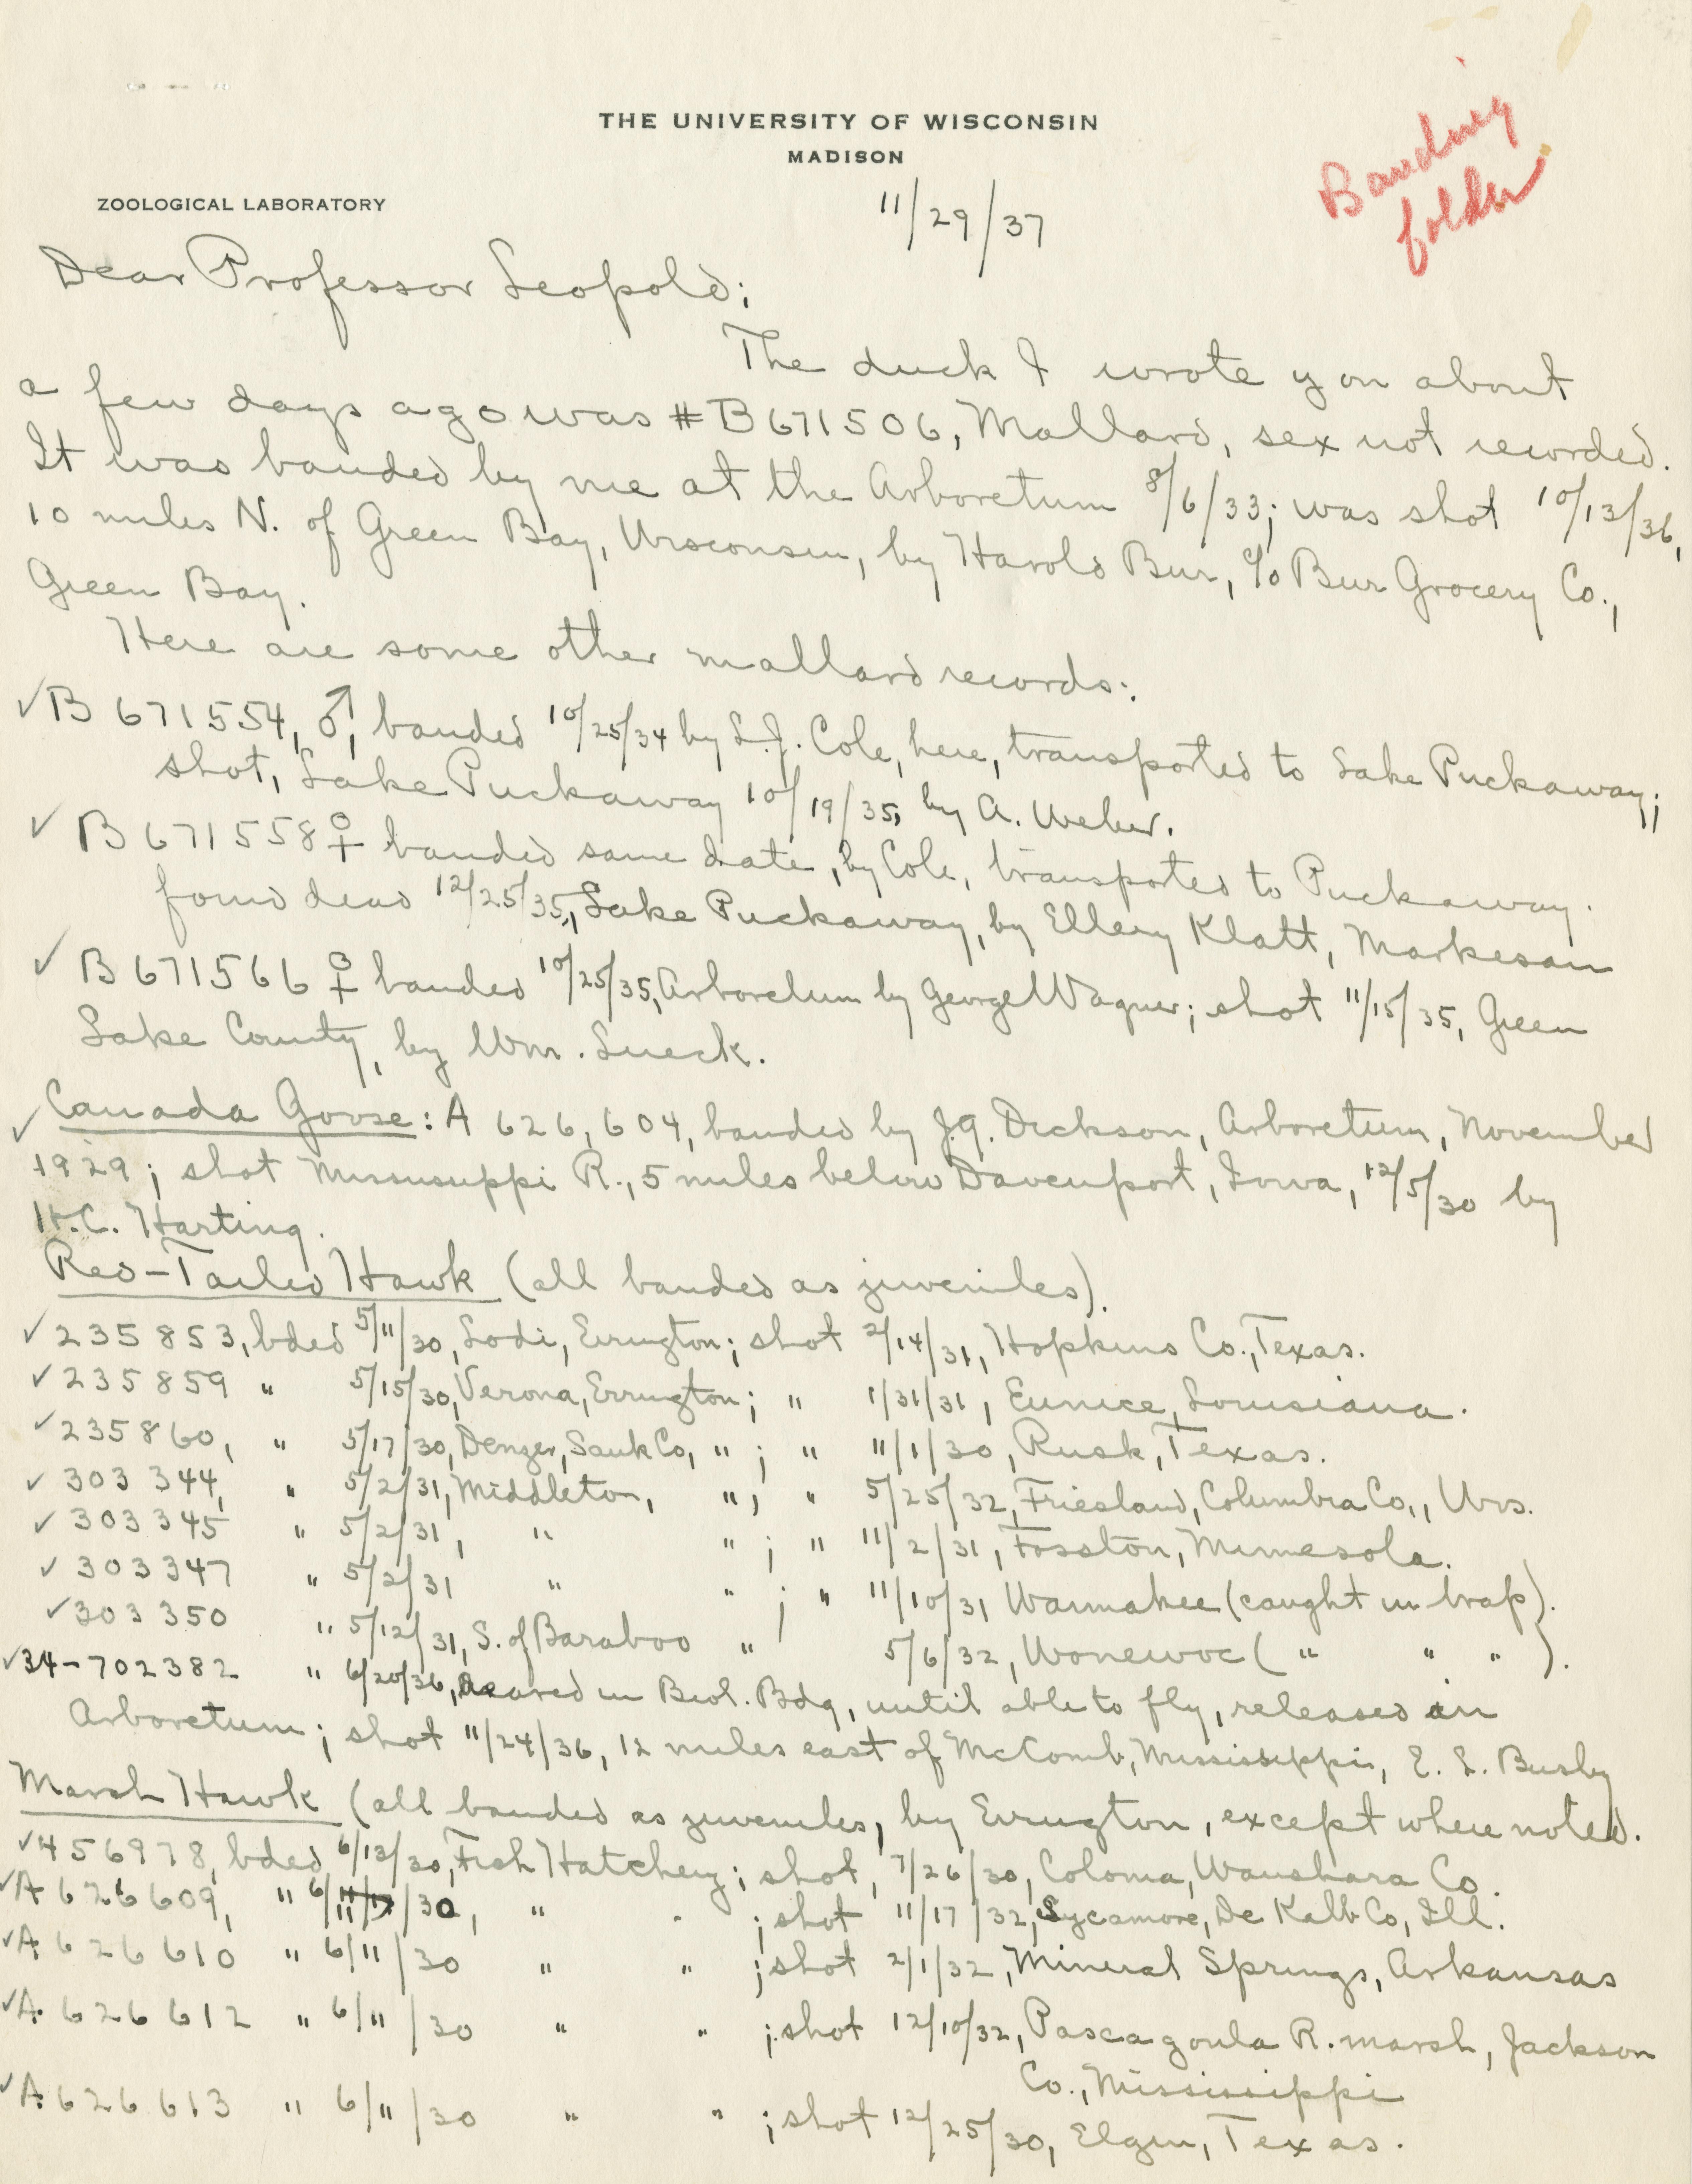 THE UNIVERSITY OF WISCONSIN
MADISON
Banding
folder
ZOOLOGICAL LABORATORY
11/29/37
Dear Professor Leopold;
The duck I wrote you about
a few days ago was #B671506, Mallard, sex not recorded.
It was banded by me at the Arboretum 8/6/33; was shot 10/13/36,
10 miles N. of Green Bay, Wisconsin, by Harold Bur, c/o Bur Grocery Co.,
Green Bay.
Here are some other mallard records:
✓B 671554, ♂, banded 10/25/34 by L.J. Cole, here, transported to Lake Puckaway;
shot, Lake Puckaway 10/19/35, by A. Weber.
✓ B 671558 ♀ banded same date, by Cole, transported to Puckaway.
found dead 12/25/35, Lake Puckaway, by Ellery Klatt, Markesan
✓ B 671566 ♀ banded 10/25/35, Arboretum by George Wagner; shot 11/15/35, Green
Lake County, by Wm. Lueck.
✓ Canada Goose: A 626,604, banded by J.G. Dickson, Arboretum, November
1929; shot Mississippi R., 5 miles below Davenport, Iowa, 12/5/30 by
H.C. Harting.
Red-Tailed Hawk (all banded as juveniles).
✓ 235853, bded 5/11/30, Lodi, Errington; shot 2/14/31, Hopkins Co., Texas.
✓ 235859 " 5/15/30, Verona, Errington; " 1/31/31, Eunice, Louisiana.
✓ 235860, " 5/17/30, Denzer, Sauk Co, "; " 11/1/30, Rusk, Texas.
✓ 303 344, " 5/2/31, Middleton, "; " 5/25/32, Friesland, Columbia Co., Wis.
✓ 303345 " 5/2/31, " "; " 11/2/31, Fosston, Minnesota.
✓ 303347 " 5/2/31 " "; " 11/10/31 Waunakee (caught in trap).
✓303 350 " 5/12/31, S. of Baraboo "; 5/6/32, Wonewoc ( " " " ).
✓34-702382 " 6/20/36, Reared in Biol. Bdg, until able to fly, released in
Arboretum; shot 11/24/36, 12 miles east of McComb, Mississippi, E. L. Busby
Marsh Hawk (all banded as juveniles, by Errington, except where noted.
✓456978, bded 6/13/30, Fish Hatchery; shot, 7/26/30, Coloma, Waushara Co.
✓A 626609, " 6/11/30, " " ; shot 11/17/32, Sycamore, De Kalb Co, Ill.
✓A 626610 " 6/11/30 " " ; shot 2/1/32, Mineral Springs, Arkansas
✓A 626 612 " 6/11/30 " " ; shot 12/10/32, Pascagoula R. marsh, Jackson
Co., Mississippi
✓A 626 613 " 6/11/30 " " ; shot 12/25/30, Elgin, Texas.